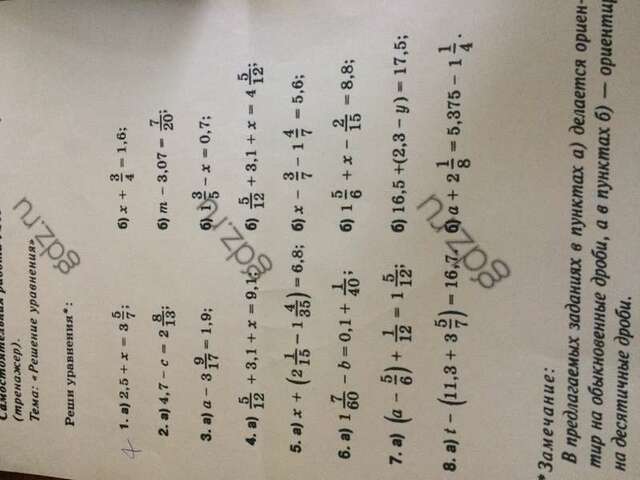 Самостоятельная работа
(тренажер).
Тема: «Решение уравнения»
Реши уравнения*:
1. а) 2,5 + x = 3 5/7; б) x + 3/4 = 1,6;
2. а) 4,7 − c = 2 8/13; б) m − 3,07 = 7/20;
3. а) a − 3 9/17 = 1,9; б) 1 3/5 − x = 0,7;
4. а) 5/12 + 3,1 + x = 9,1; б) 5/12 + 3,1 + x = 4 5/12;
5. а) x + (2 1/15 − 1 4/35) = 6,8; б) x − 3/7 − 1 4/7 = 5,6;
6. а) 1 7/60 − b = 0,1 + 1/40; б) 1 5/6 + x − 2/15 = 8,8;
7. а) (a − 5/6) + 1/12 = 1 5/12; б) 16,5 + (2,3 − y) = 17,5;
8. а) t − (11,3 + 3 5/7) = 16,7. б) a + 2 1/8 = 5,375 − 1 1/4.
*Замечание:
В предлагаемых заданиях в пунктах а) делается ориен-
тир на обыкновенные дроби, а в пунктах б) — ориентир
на десятичные дроби.
ru.zpg
ru.zpg
ru.zpg